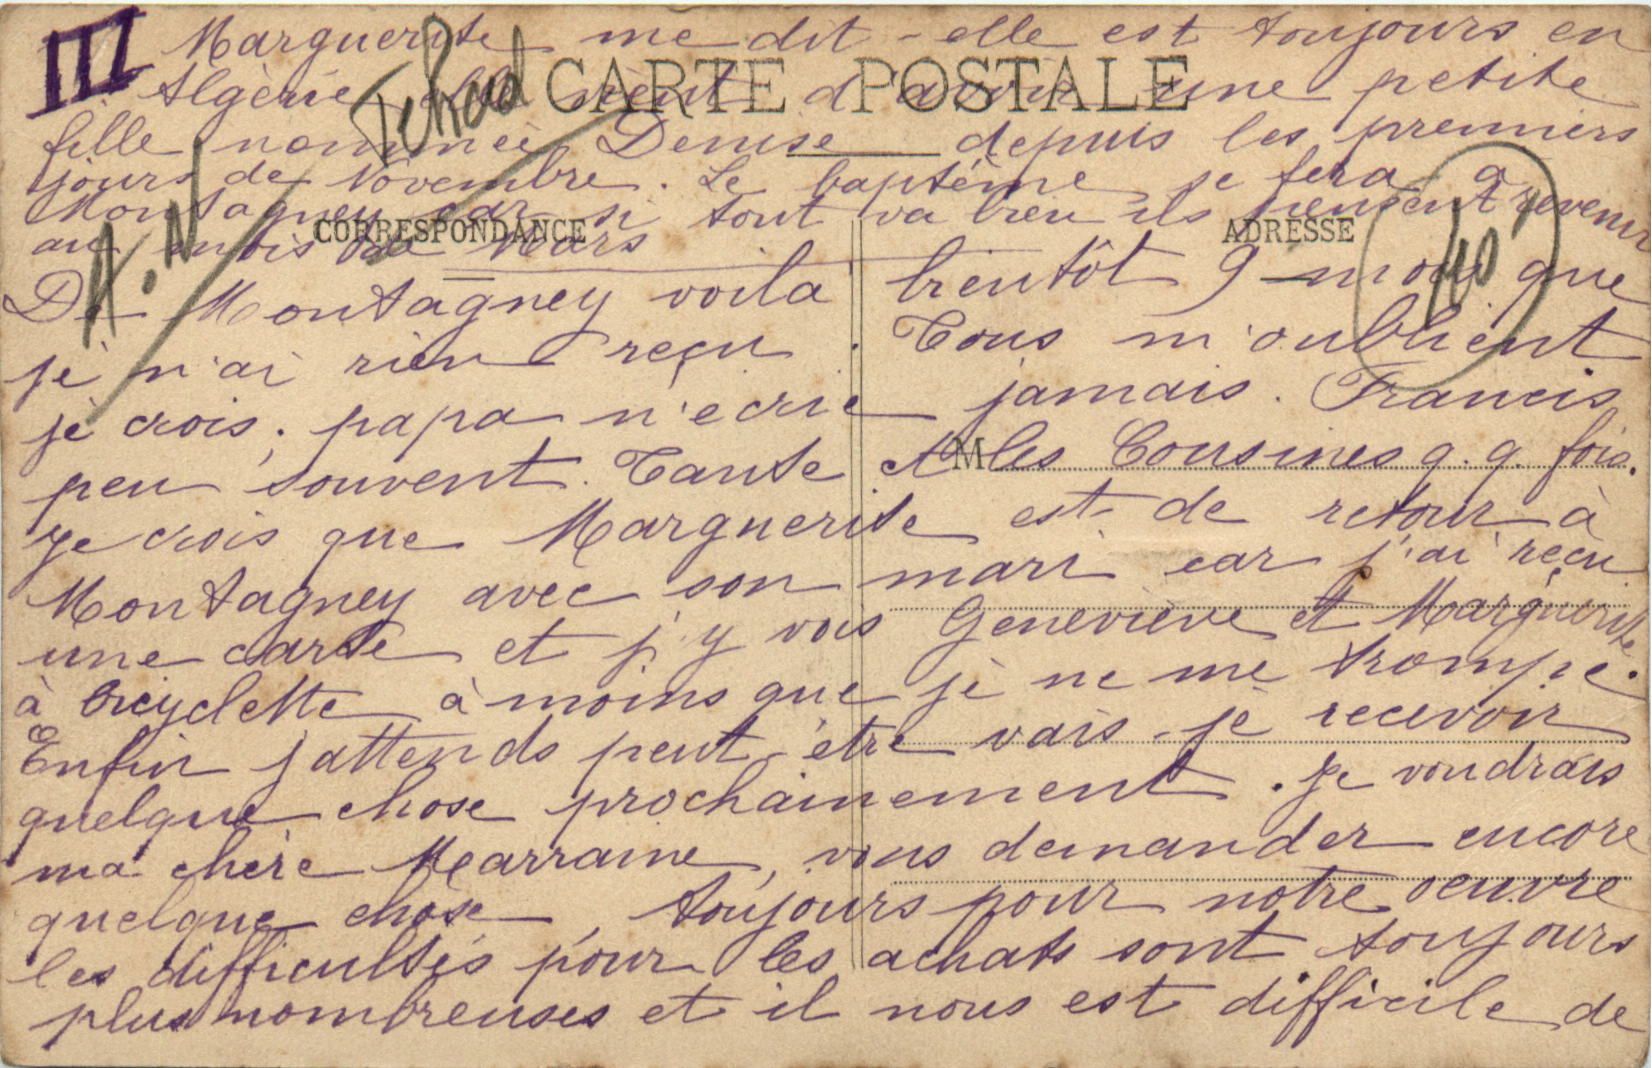 III
Marguerite me dit - elle est toujours en
CARTE POSTALE
Tchad
Algérie elle vient d'avoir une petite
fille nommée Denise depuis les premiers
jours de Novembre. Le baptême se fera à
Montagney car si tout va bien ils pensent revenir
au mois de Mars
CORRESPONDANCE
ADRESSE
A.N
40
De Montagney voila bientôt 9 mois que
je n'ai rien reçu. Tous m'oublient
je crois. papa n'ecrit jamais. Francis
peu souvent. Tante et les Cousines q.q. fois.
M
Je crois que Marguerite est de retour à
Montagney avec son mari car j'ai reçu
une carte et j'y vois Geneviève et Marguerite
à bicyclette à moins que je ne me trompe.
Enfin j'attends peut-être vais-je recevoir
quelque chose prochainement. Je voudrais
ma chère Marraine, vous demander encore
quelque chose, toujours pour notre oeuvre
les difficultés pour les achats sont toujours
plus nombreuses et il nous est difficile de